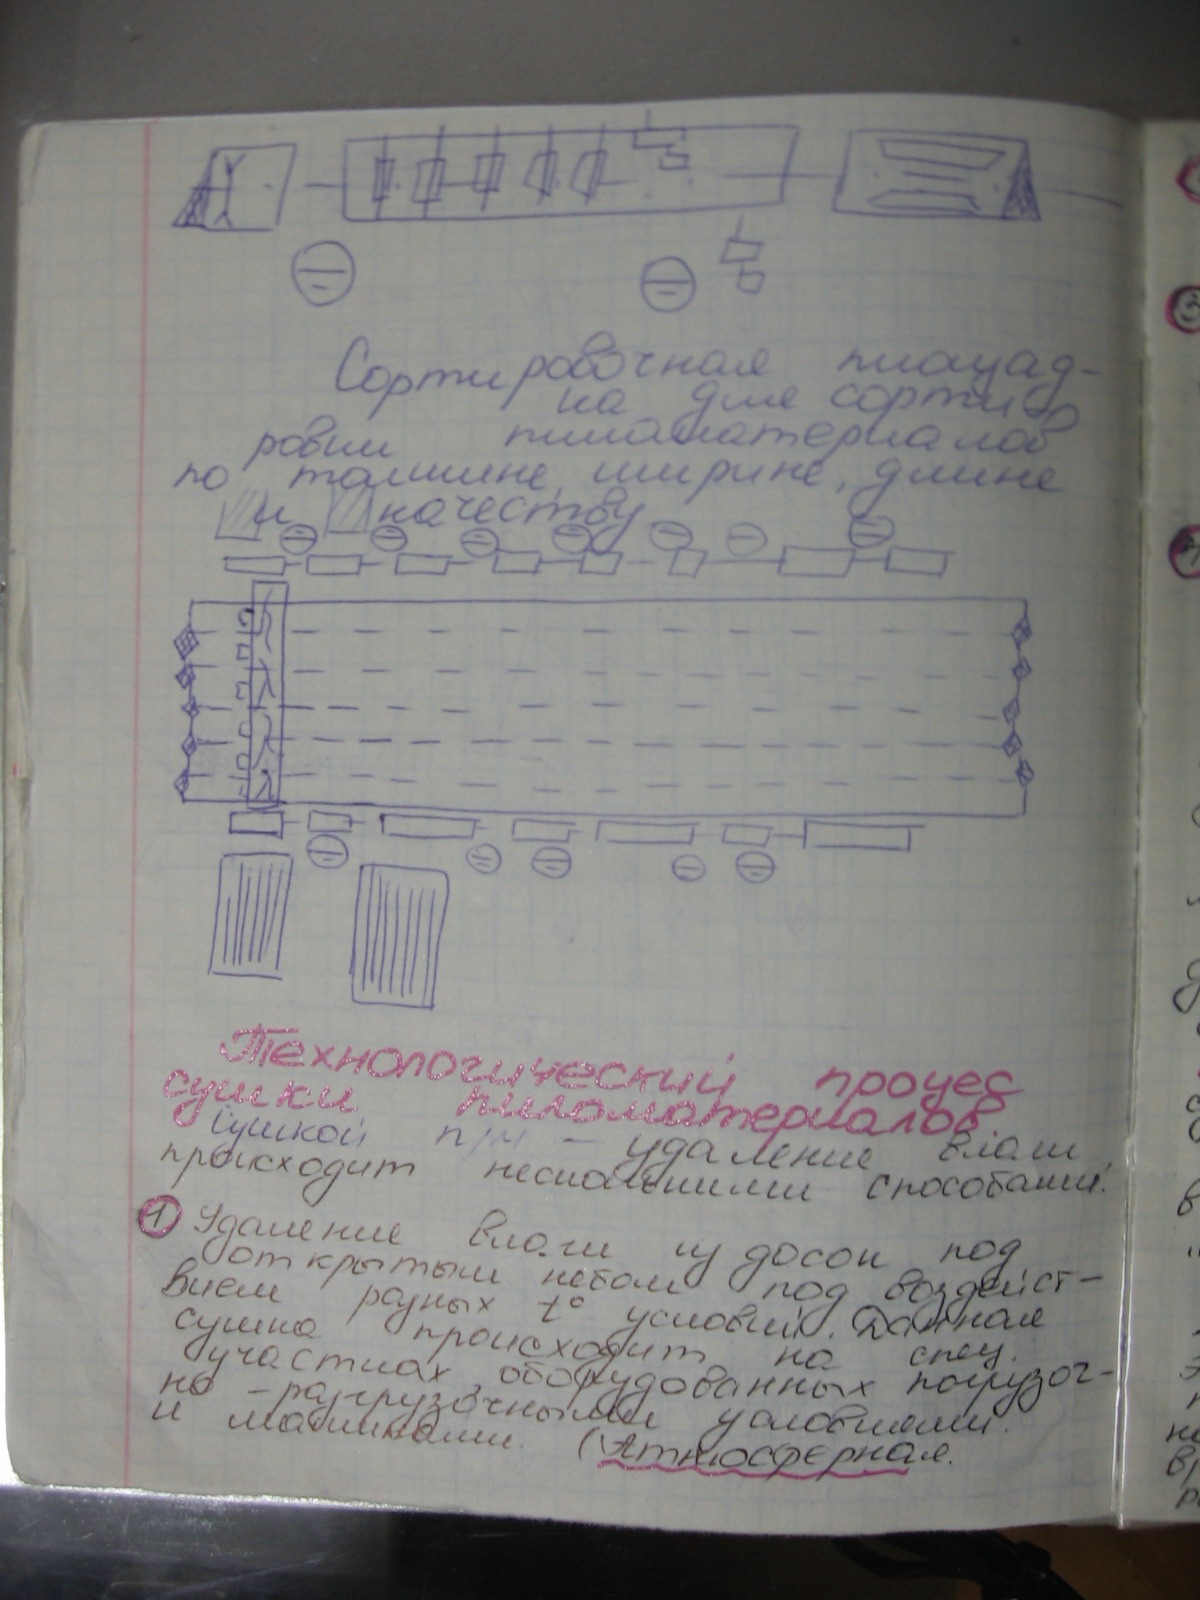 Сортировочная площад-
ка для сорти
ровки пиломатериалов
по толщине, ширине, длине
и качеству
Технологический процес
сушки пиломатериалов
Сушкой п/м – удаление влаги,
происходит несколькими способами.
1 Удаление влаги из досок под
открытым небом под воздейст-
вием разных t° условий. Данная
сушка происходит на спец.
участках, оборудованных погрузоч-
но-разгрузочными условиями.
и машинами. (Атмосферная.